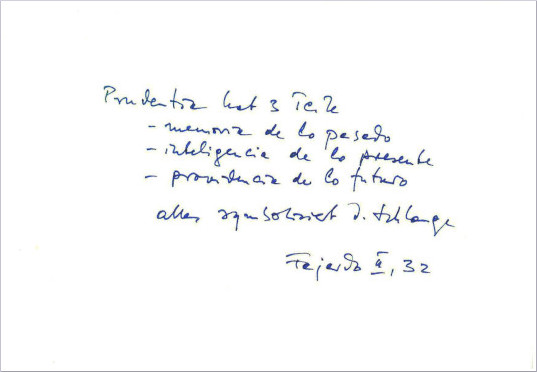 Prudentia hat 3 Teile
- memoria de lo pasado
- inteligencia de lo presente
- providencia de lo futuro
alles symbolisiert d. Schlange
Fajardo II, 32